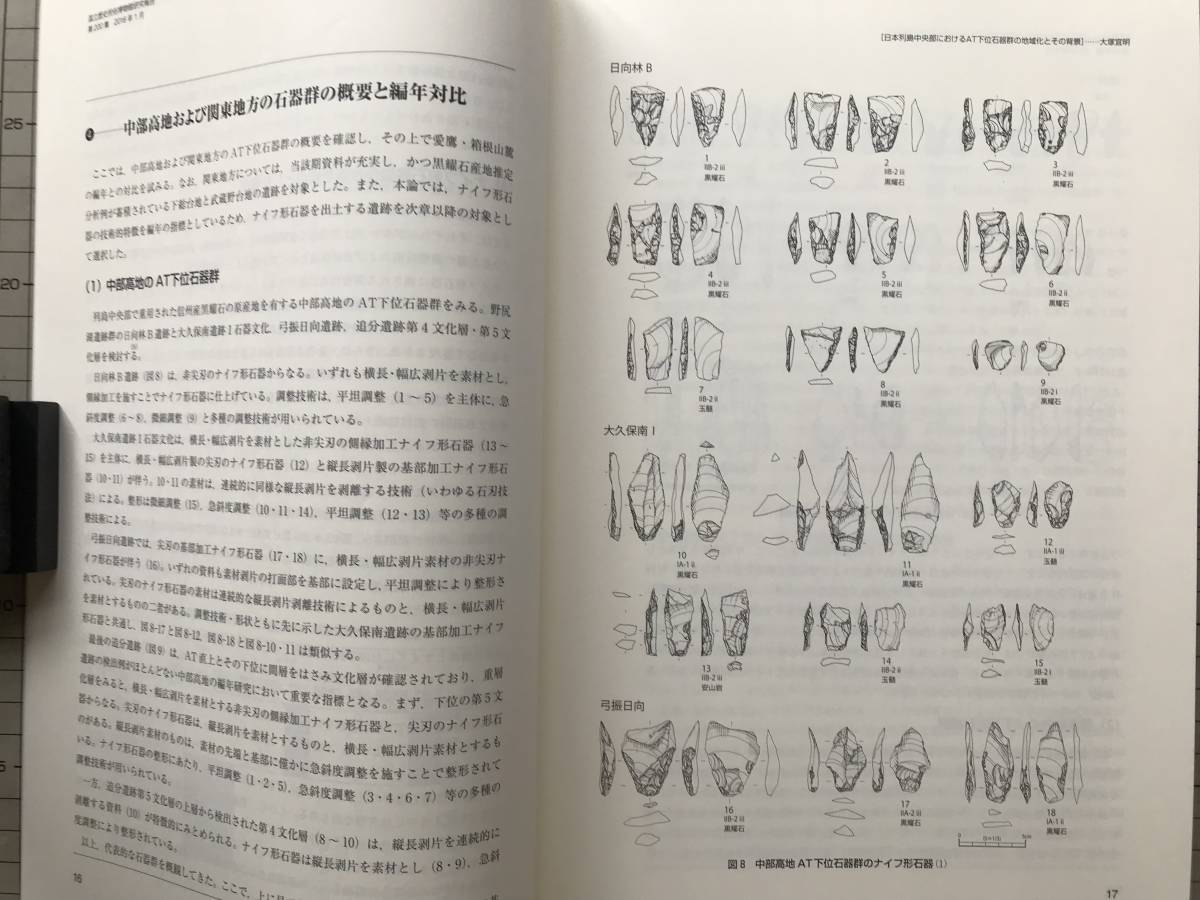 国立歴史民俗博物館研究報告
第200集 2016年1月
❹――中部高地および関東地方の石器群の概要と編年対比
ここでは，中部高地および関東地方のAT下位石器群の概要を確認し，その上で愛鷹・箱根山麓
の編年との対比を試みる。なお，関東地方については，当該期資料が充実し，かつ黒耀石産地推定
分析例が蓄積されている下総台地と武蔵野台地の遺跡を対象とした。また，本論では，ナイフ形石
器の技術的特徴を編年の指標としているため，ナイフ形石器を出土する遺跡を次章以降の対象とし
て選択した。
(1) 中部高地のAT下位石器群
列島中央部で重用された信州産黒耀石の原産地を有する中部高地のAT下位石器群をみる。野尻
湖遺跡群の日向林B遺跡と大久保南遺跡Ⅰ石器文化，弓振日向遺跡，追分遺跡第4文化層・第5文
化層を検討する。
日向林B遺跡（図8）は，非尖刃のナイフ形石器からなる。いずれも横長・幅広剥片を素材とし，
側縁加工を施すことでナイフ形石器に仕上げている。調整技術は，平坦調整（1～5）を主体に，急
斜度調整（6～8），微細調整（9）と多種の調整技術が用いられている。
大久保南遺跡Ⅰ石器文化は，横長・幅広剥片を素材とした非尖刃の側縁加工ナイフ形石器（13～
15）を主体に，横長・幅広剥片製の尖刃のナイフ形石器（12）と縦長剥片製の基部加工ナイフ形石
器（10・11）が伴う。10・11の素材は，連続的に同様な縦長剥片を剥離する技術（いわゆる石刃技
法）による。整形は微細調整（15），急斜度調整（10・11・14），平坦調整（12・13）等の多種の調
整技術による。
弓振日向遺跡では，尖刃の基部加工ナイフ形石器（17・18）に，横長・幅広剥片素材の非尖刃ナ
イフ形石器が伴う（16）。いずれの資料も素材剥片の打面部を基部に設定し，平坦調整により整形さ
れている。尖刃のナイフ形石器の素材は連続的な縦長剥片剥離技術によるものと，横長・幅広剥片
を素材とするものの二者がある。調整技術・形状ともに先に示した大久保南遺跡の基部加工ナイフ
形石器と共通し，図8-17と図8-12，図8-18と図8-10・11は類似する。
最後の追分遺跡（図9）は，AT直上とその下位に間層をはさみ文化層が確認されており，重層
遺跡の検出例がほとんどない中部高地の編年研究において重要な指標となる。まず，下位の第5文
化層をみると，横長・幅広剥片を素材とする非尖刃の側縁加工ナイフ形石器と，尖刃のナイフ形石
器からなる。尖刃のナイフ形石器は，縦長剥片を素材とするものと，横長・幅広剥片素材とするも
のがある。縦長剥片素材のものは，素材の先端と基部に僅かに急斜度調整を施すことで整形されて
いる。ナイフ形石器の整形にあたり，平坦調整（1・2・5），急斜度調整（3・4・6・7）等の多種の
調整技術が用いられている。
一方，追分遺跡第5文化層の上層から検出された第4文化層（8～10）は，縦長剥片を連続的に
剥離する資料（10）が特徴的にみとめられる。ナイフ形石器は縦長剥片を素材とし（8・9），急斜
度調整により整形されている。
以上，代表的な石器群を概観してきた。ここで，
16
[日本列島中央部におけるAT下位石器群の地域化とその背景]……大塚宜明
日向林B
1
ⅡB-2 ⅲ
黒耀石
2
ⅡB-2 ⅱ
黒耀石
3
ⅡB-2 ⅲ
黒耀石
4
ⅡB-2 ⅲ
黒耀石
5
ⅡB-2 ⅲ
黒耀石
6
ⅡB-2 ⅱ
黒耀石
7
ⅡB-2 ⅱ
玉髄
8
ⅡB-2 ⅱ
黒耀石
9
ⅡB-2 ⅰ
黒耀石
大久保南Ⅰ
10
ⅠA-1 ⅱ
黒耀石
11
ⅠA-1 ⅱ
黒耀石
12
ⅡA-1 ⅲ
玉髄
13
ⅡB-2 ⅲ
安山岩
14
ⅡB-2 ⅱ
玉髄
15
ⅡB-2 ⅰ
玉髄
弓振日向
16
ⅡB-2 ⅲ
黒耀石
17
ⅡA-2 ⅲ
黒耀石
18
ⅠA-1 ⅱ
黒耀石
0 (S=1/3) 5cm
図8 中部高地AT下位石器群のナイフ形石器(1)
17
25
20
10
5